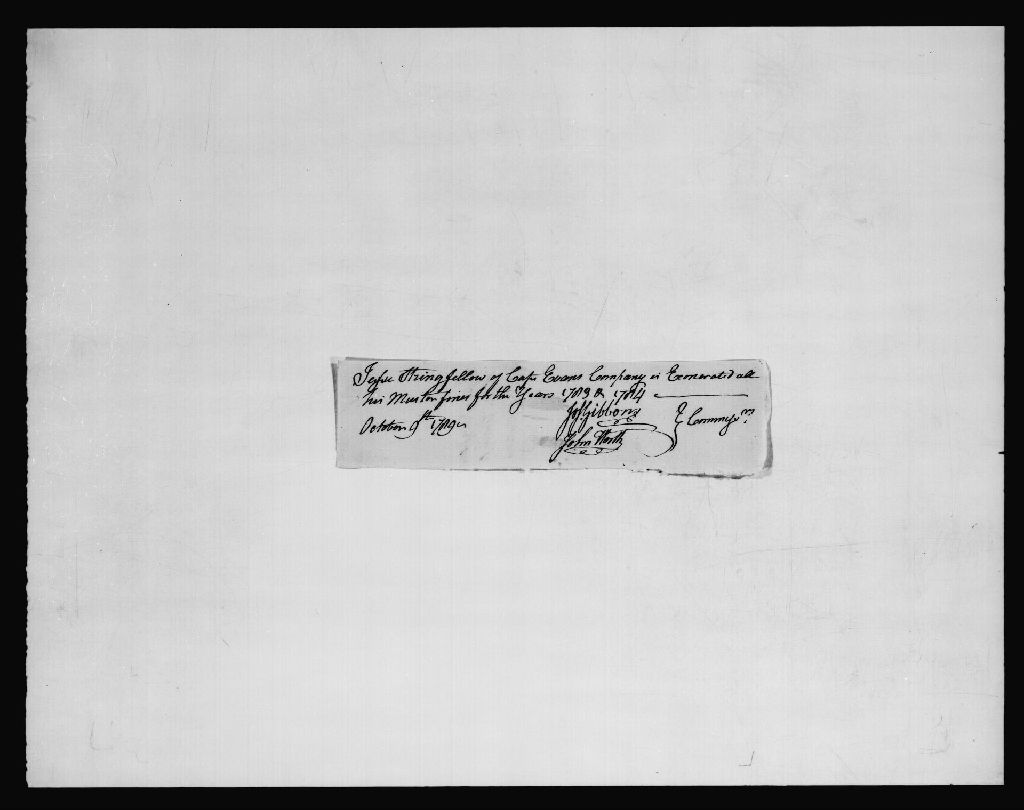 Jesse Stringfellow of Capt Evans Company is Exonerated all
his Muster fines for the Years 1783 & 1784
October 9th 1789
Jos Gibbons
John Worth } Commissrs